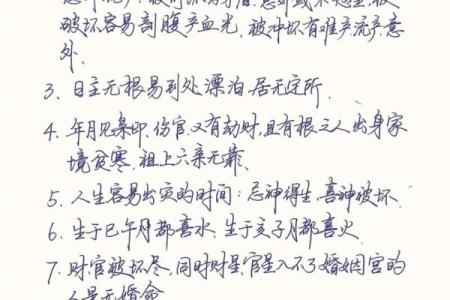 破坏容易剖腹产血光,被冲坏有难产流产意
外.
3、日主无根易到处漂泊.居无定所.
4、年月见枭印.伤官又有劫财,且有根之人出身家
境贫寒.祖上六亲无靠.
5、人生容易出灾的时间:忌神得生,喜神被破坏.
6、生于巳午月都喜水.生于亥子月都喜火.
7、财官被坏尽,同时财星官星入不了婚姻宫的
人是无婚命